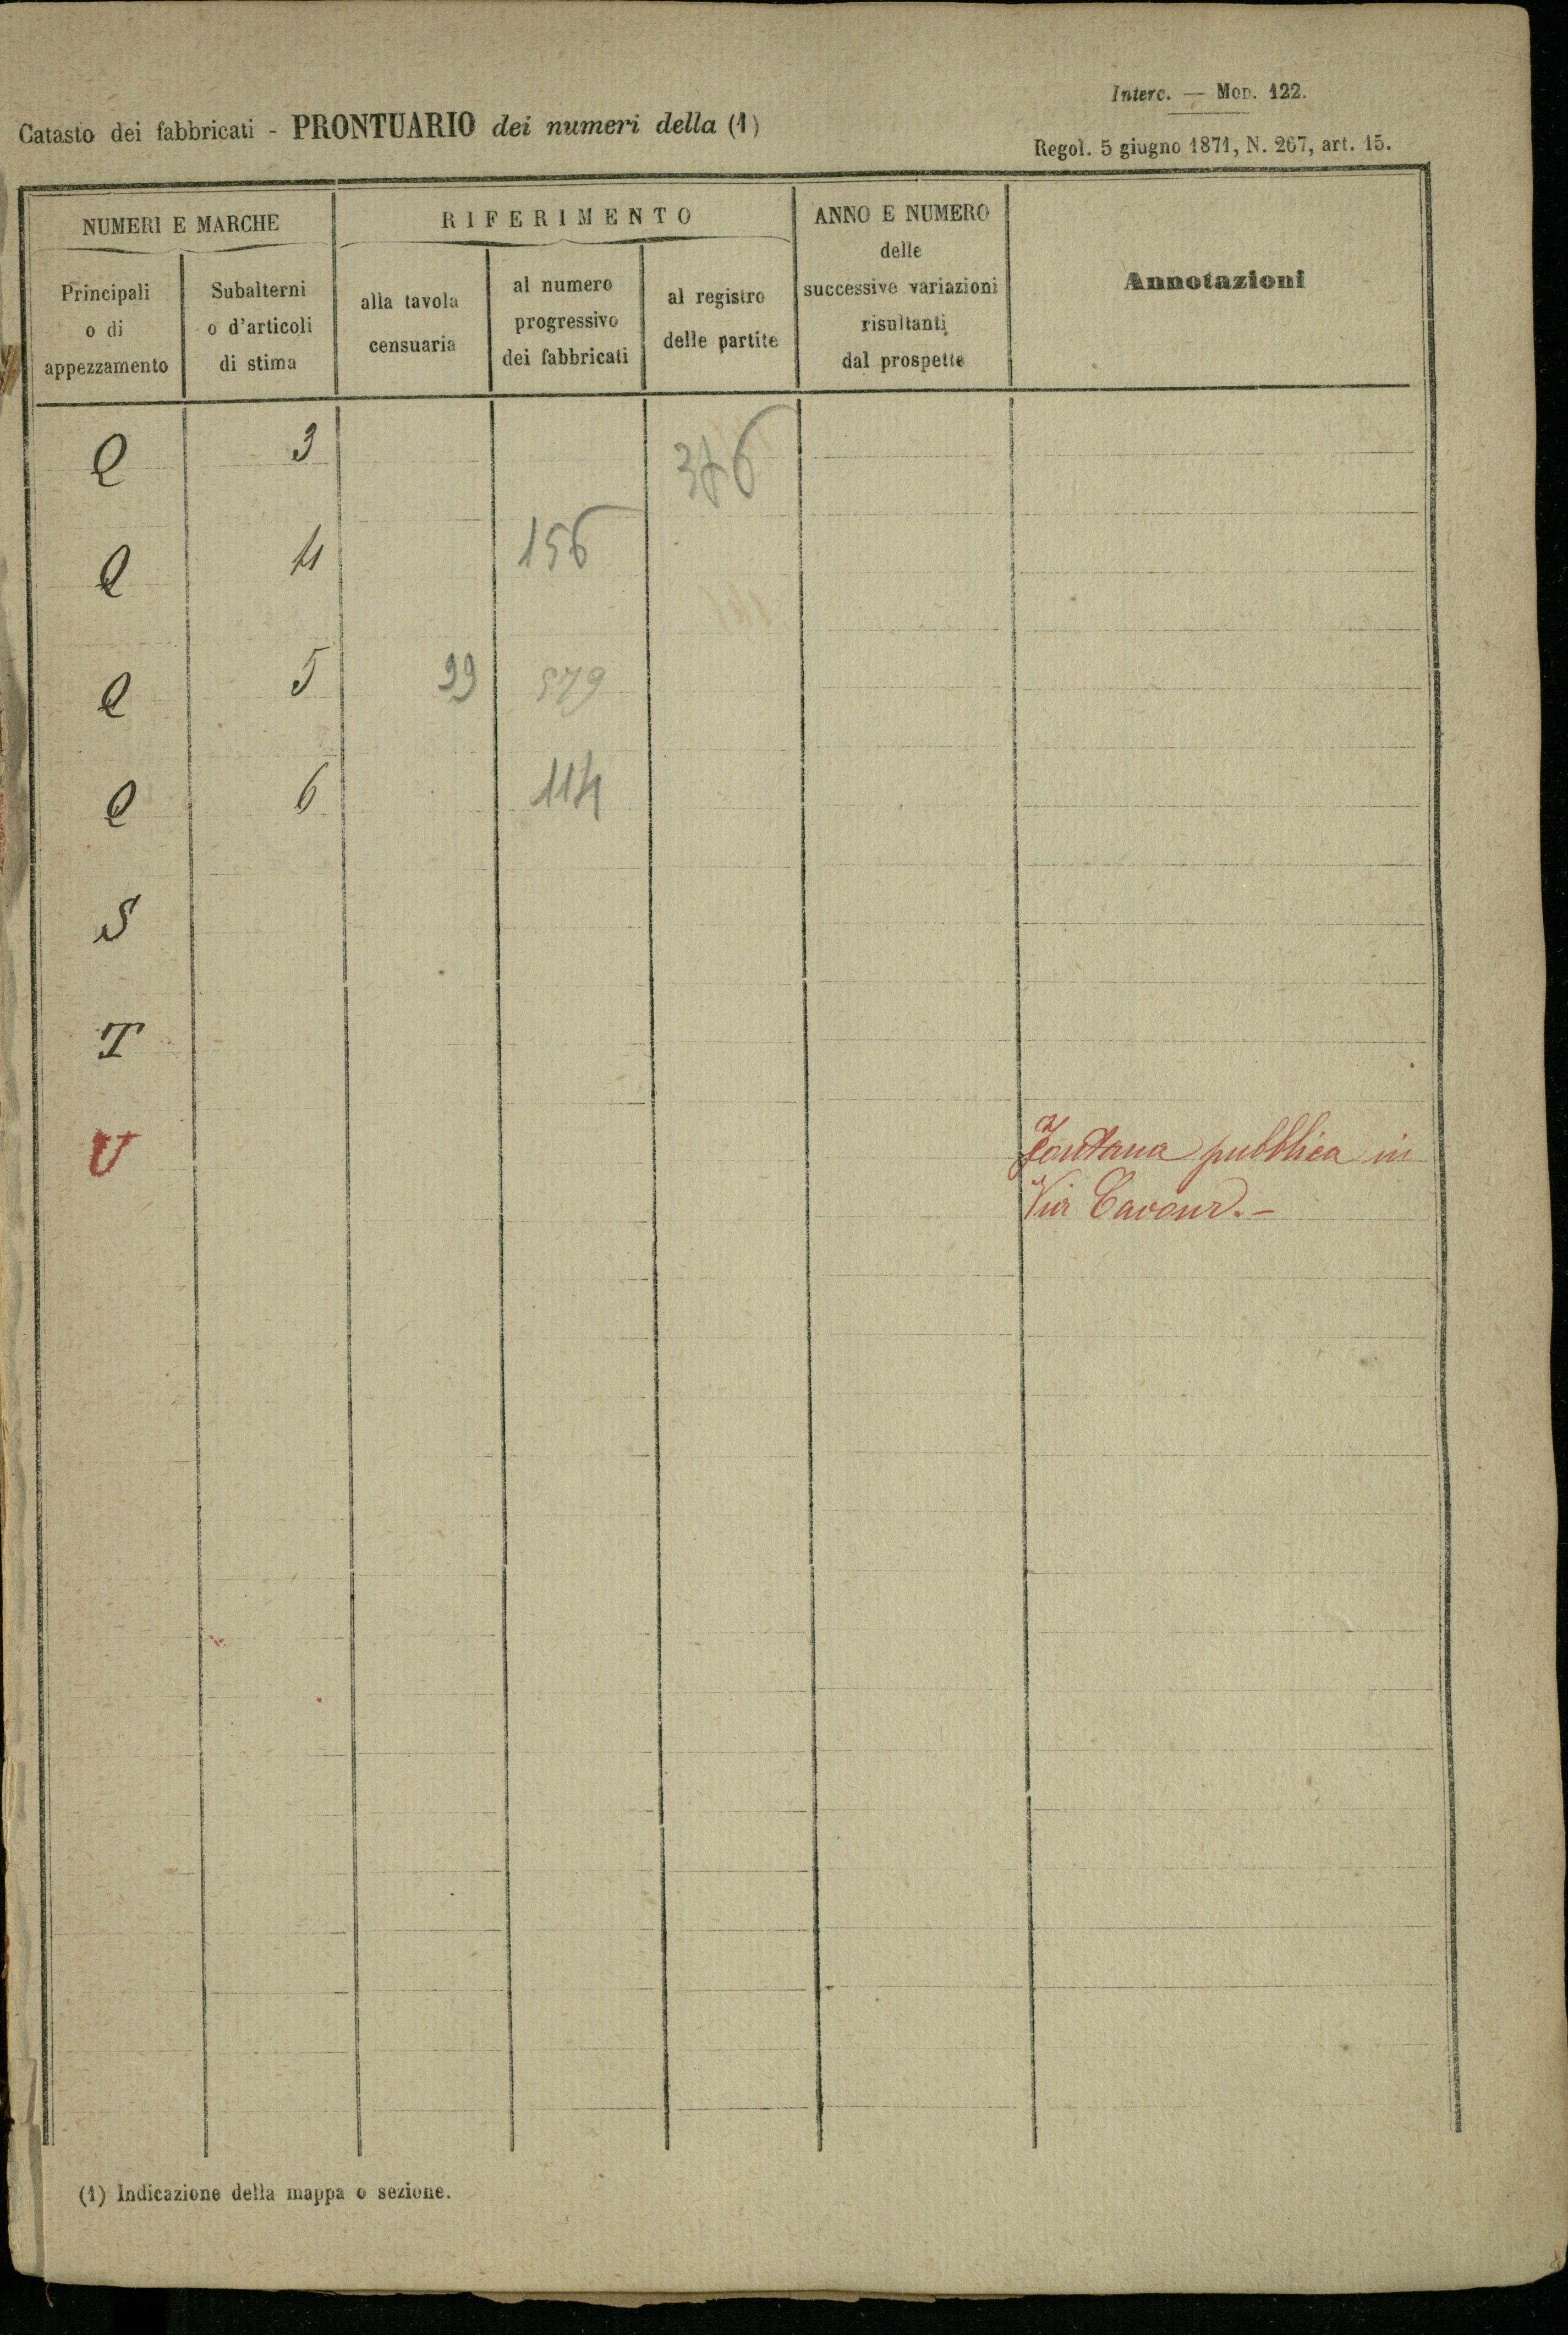 Interc. — Mod. 122.
Catasto dei fabbricati - PRONTUARIO dei numeri della (1)
Regol. 5 giugno 1871, N. 267, art. 15.
NUMERI E MARCHE
RIFERIMENTO
ANNO E NUMERO
delle
successive variazioni
risultanti
dal prospette
Annotazioni
Principali
o di
appezzamento
Subalterni
o d'articoli
di stima
alla tavola
censuaria
al numero
progressivo
dei fabbricati
al registro
delle partite
Q 3
Q 4 156
Q 5 99 579
Q 6 114
S
T
U Fontana pubblica in
Via Cavour. -
(1) Indicazione della mappa o sezione.